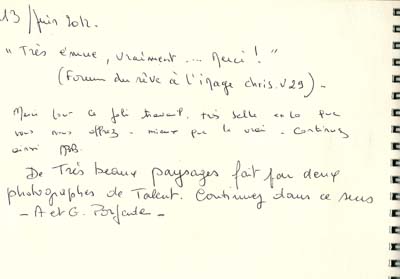 13 / Juin 2012.
"Très émue, vraiment ... Merci !"
(Forum du rêve à l'image chris.v29).
Merci pour ce joli travail. très belle que
vous nous offrez - mieux que le vrai - Continuez
ainsi
De Très beaux paysages fait par deux
photographes de Talent. Continuez dans ce sens
- A et G.